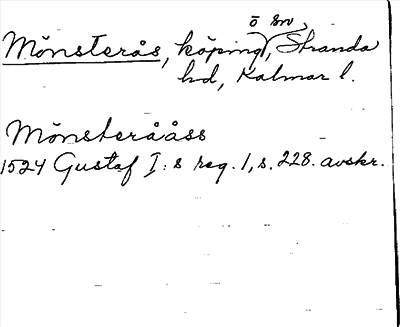 ö sn
Mönsterås, köping, Stranda
hd, Kalmar l.
Mönsterååss
1524 Gustaf I:s reg. 1, s. 228. avskr.